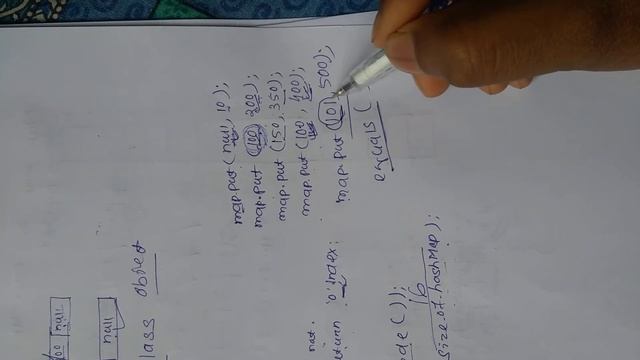 map.put(null, 10);
map.put(100, 200);
map.put(150, 350);
map.put(100, 400);
map.put(101, 500);
equals(
'0' index;
16
size.of.hashMap);
null
null
lass object